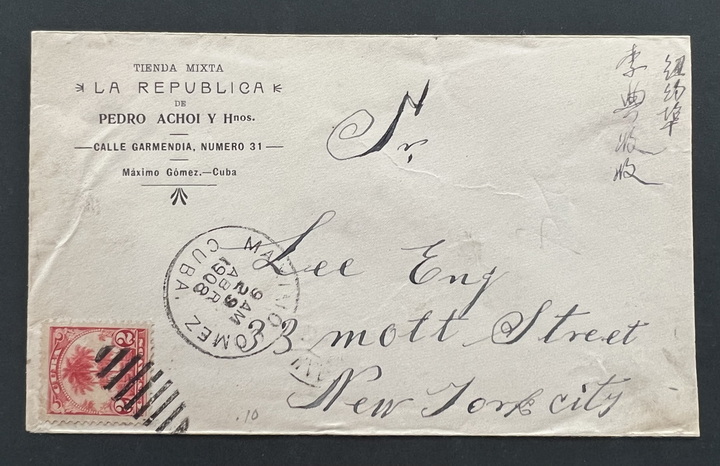 TIENDA MIXTA
LA REPUBLICA
DE
PEDRO ACHOI Y Hnos.
CALLE GARMENDIA, NUMERO 31
Máximo Gómez.—Cuba
紐約埠
李典收收
Sr.
Lee Eng
33 mott Street
New York city
MAXIMO GOMEZ
CUBA.
9 AM
ABR
1908
CUBA
2
2
.10